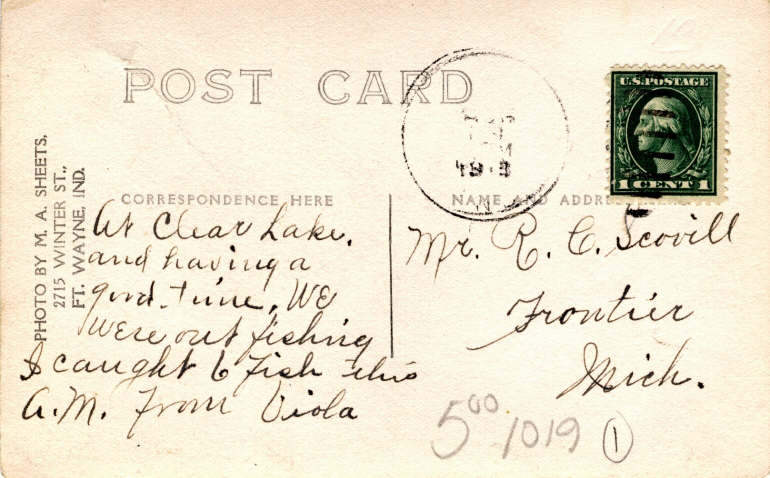 POST CARD
U.S. POSTAGE
1 CENT 1
PHOTO BY M. A. SHEETS,
2715 WINTER ST.,
FT. WAYNE, IND.
CORRESPONDENCE HERE
At Clear Lake.
and having a
good time. We
were out fishing
I caught 6 fish this
A.M. From Viola
NAME AND ADDRESS
Mr. R. C. Scovill
Frontier
Mich.
5 00 1019 1